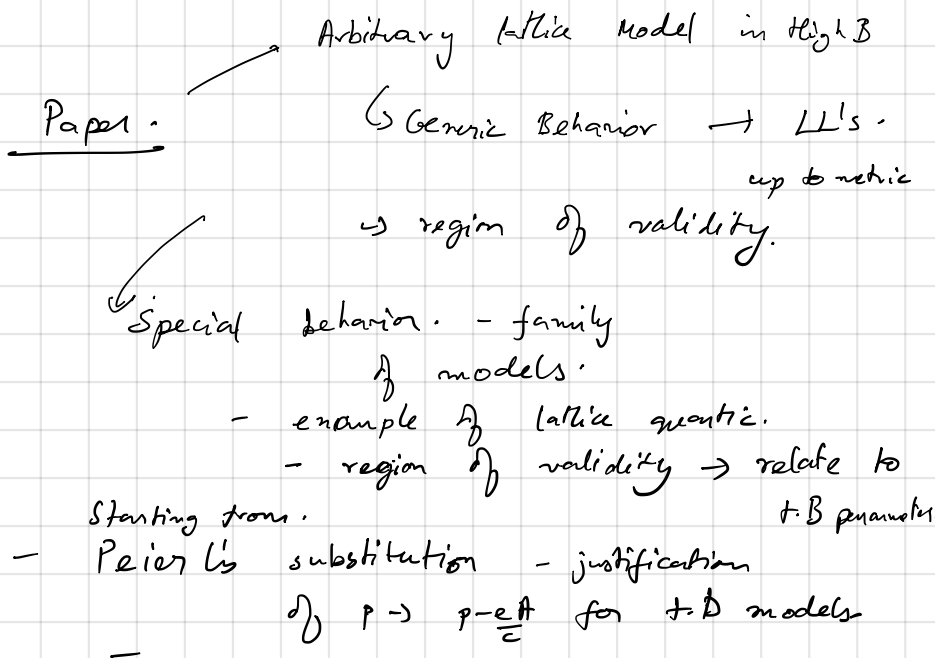 Arbitrary lattice Model in High B
Paper.
↳ Generic Behavior → LL's.
up to metric
→ region of validity.
Special behavior. - family
of models.
- example of lattice quartic.
- region of validity → relate to
Starting from. t.B parameter
- Peierl's substitution - justification
of p → p-eA/c for t.B models
-